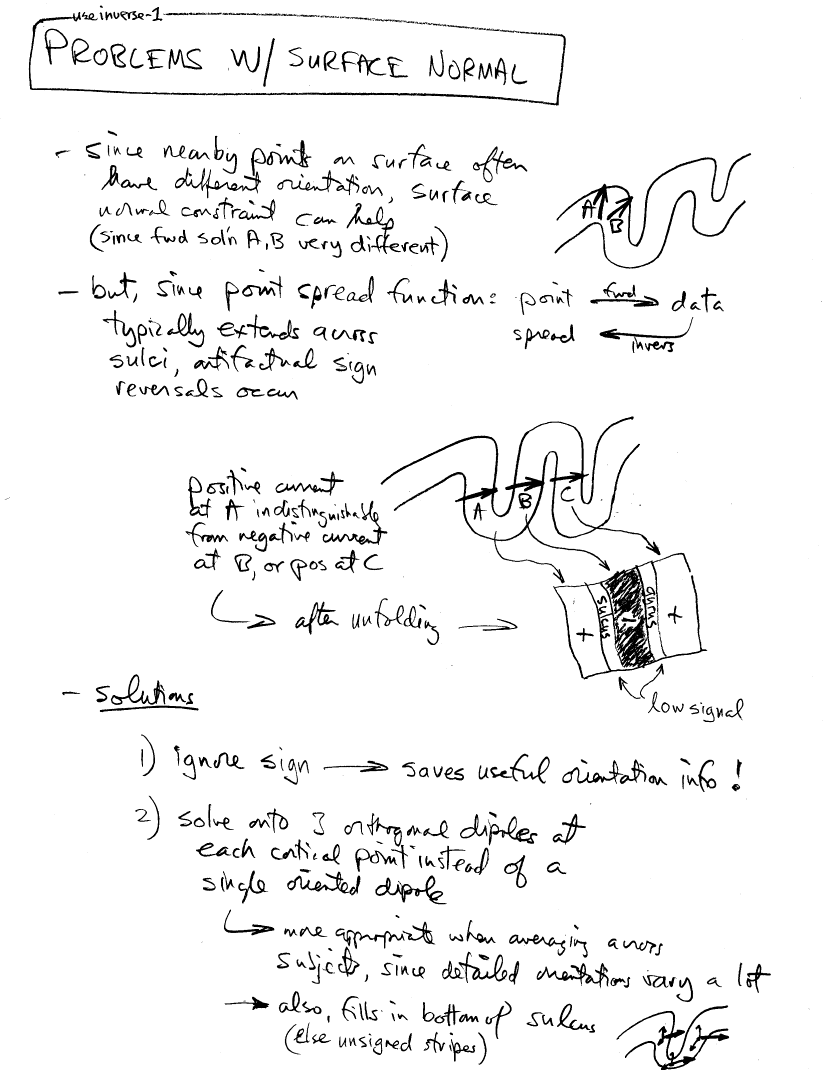 use inverse-1
PROBLEMS W/ SURFACE NORMAL
- since nearby points on surface often
have different orientation, surface
normal constraint can help
(since fwd sol'n A,B very different)
A
B
- but, since point spread function: point fwd data
typically extends across spread invers
sulci, artifactual sign
reversals occur
positive current
at A indistinguishable
from negative current
at B, or pos at C
A B C
after unfolding
+ sulcus - gyrus +
low signal
- solutions
1) ignore sign → saves useful orientation info!
2) solve onto 3 orthogonal dipoles at
each cortical point instead of a
single oriented dipole
more appropriate when averaging across
subjects, since detailed orientations vary a lot
→ also, fills in bottom of sulcus
(else unsigned stripes)